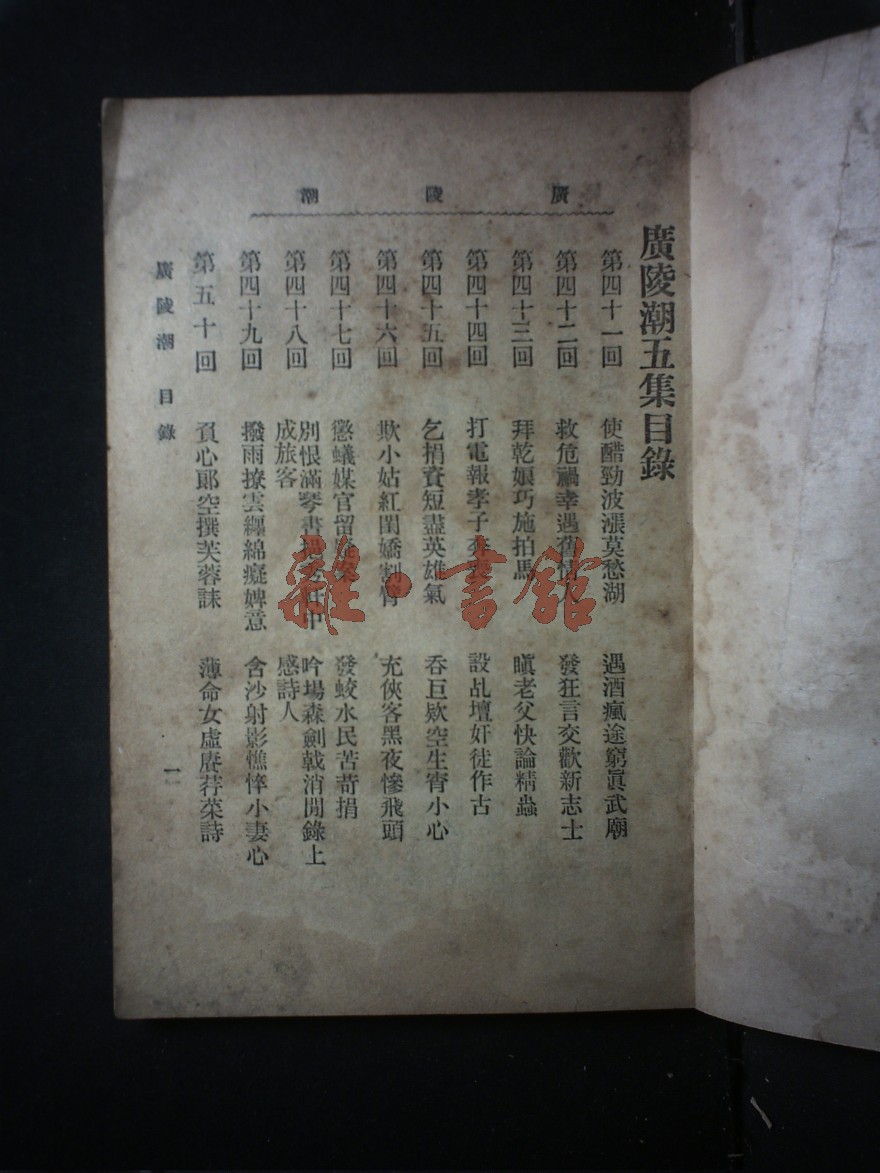 廣陵潮
廣陵潮五集目錄
第四十一回 使酷勁波漲莫愁湖 遇酒瘋途窮眞武廟
第四十二回 救危禍幸遇舊情人 發狂言交歡新志士
第四十三回 拜乾娘巧施拍馬 瞋老父快論精蟲
第四十四回 打電報孝子奔喪 設乩壇奸徒作古
第四十五回 乞捐資短盡英雄氣 吞巨欵空生宵小心
第四十六回 欺小姑紅閨嬌割臂 充俠客黑夜慘飛頭
第四十七回 懲蟻媒官留疑案 發蛟水民苦苛捐
第四十八回 別恨滿琴書 中成旅客 吟場森劍戟消閒錄上感詩人
第四十九回 撥雨撩雲纏綿癡婢意 含沙射影憔悴小妻心
第五十回 負心郎空撰芙蓉誄 薄命女虛賡荇菜詩
廣陵潮 目錄
一
雜·書館